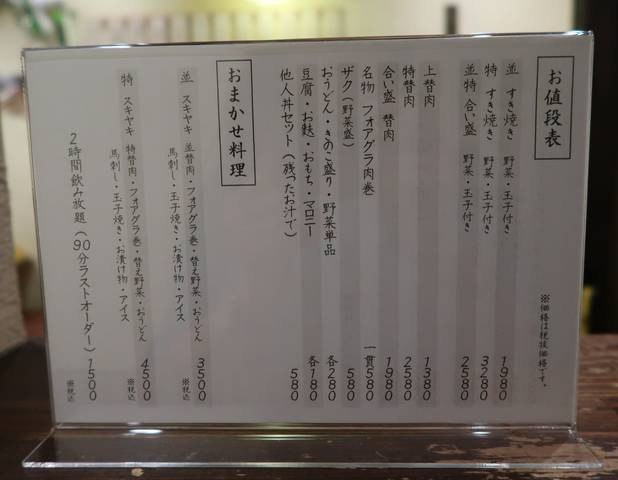 お値段表
※価格は税抜価格です。
並 すき焼き 野菜・玉子付き 1980
特 すき焼き 野菜・玉子付き 3280
並特 合い盛 野菜・玉子付き 2580
上替肉 1380
特替肉 2580
合い盛 替肉 1980
名物 フォアグラ肉巻 一貫580
ザク(野菜盛) 580
おうどん・きのこ盛り・野菜単品 各280
豆腐・お麩・おもち・マロニー 各180
他人丼セット(残ったお汁で) 580
おまかせ料理
並 スキヤキ 並替肉・フォアグラ巻・替え野菜・おうどん
馬刺し・玉子焼き・お漬け物・アイス 3500 ※税込
特 スキヤキ 特替肉・フォアグラ巻・替え野菜・おうどん
馬刺し・玉子焼き・お漬け物・アイス 4500 ※税込
2時間飲み放題(90分ラストオーダー) 1500 ※税込